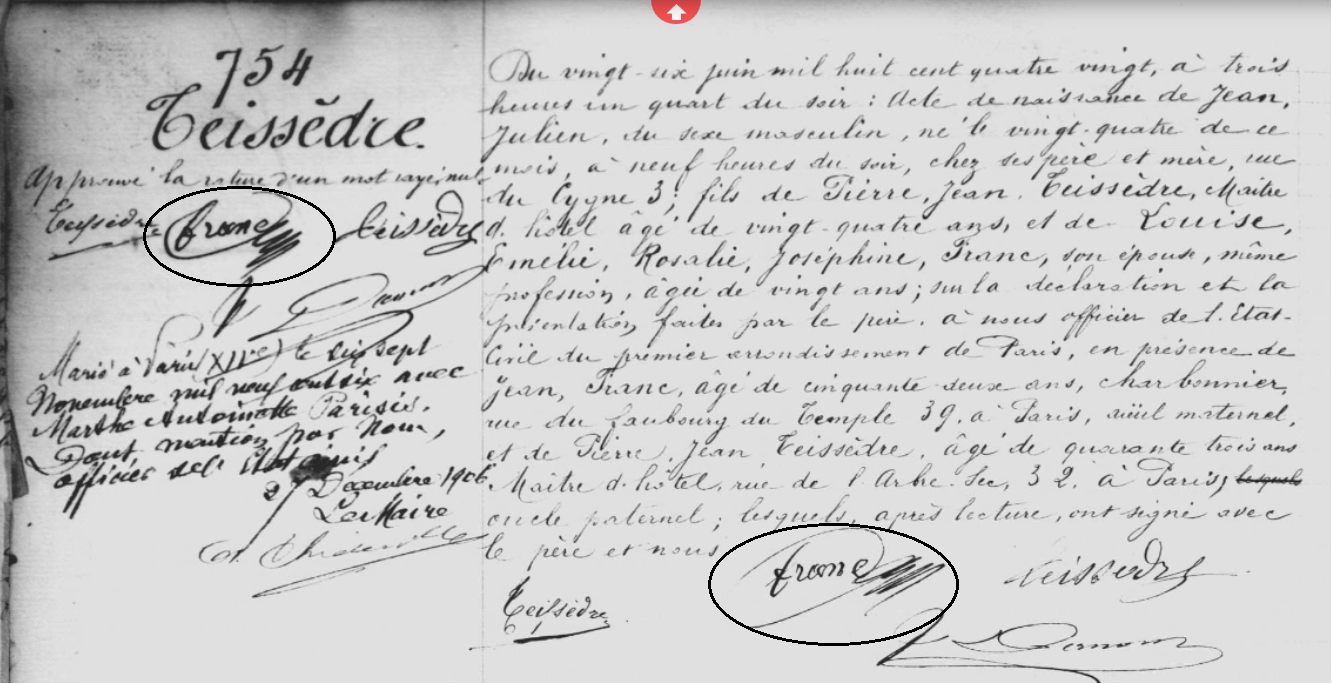 754
Teissèdre.
Approuvé la rature d'un mot rayé nul
Teissèdre franc Teissèdre
Marié à Paris (XIVe) le dix sept
Novembre mil neuf cent six avec
Marthe Antoinette Parisis.
Dont mention par Nous,
officier de l'Etat civil
27 Décembre 1906
Le Maire
Du vingt-six juin mil huit cent quatre vingt, à trois
heures un quart du soir : Acte de naissance de Jean,
Julien, du sexe masculin, né le vingt-quatre de ce
mois, à neuf heures du soir, chez ses père et mère, rue
du Cygne 3; fils de Pierre, Jean. Teissèdre, Maître
d. hôtel âgé de vingt-quatre ans, et de Louise,
Emélie, Rosalie, Joséphine, Franc, son épouse, même
profession, âgée de vingt ans; sur la déclaration et la
présentation faites par le père. à nous officier de l. Etat-
Civil du premier arrondissement de Paris, en présence de
Jean, Franc, âgé de cinquante deux ans, charbonnier,
rue du faubourg du Temple 39. à Paris, aïeul maternel,
et de Pierre, Jean Teissèdre, âgé de quarante trois ans
Maitre d. hôtel, rue de l. Arbre-Sec, 32. à Paris; lesquels
oncle paternel; lesquels, après lecture, ont signé avec
le père et nous
franc Teissedre
Teissèdre